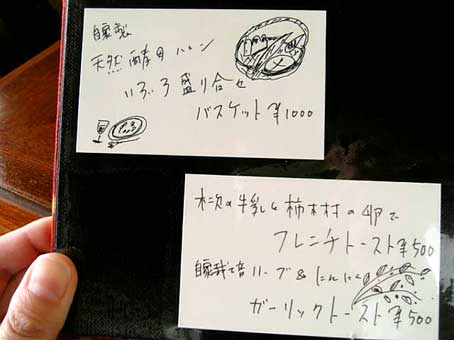 自家製
天然酵母パン
いろいろ盛り合せ
バスケット ¥1000
木次の牛乳と柿木村の卵で
フレンチトースト ¥500
自家栽培ハーブ&にんにく
ガーリックトースト ¥500